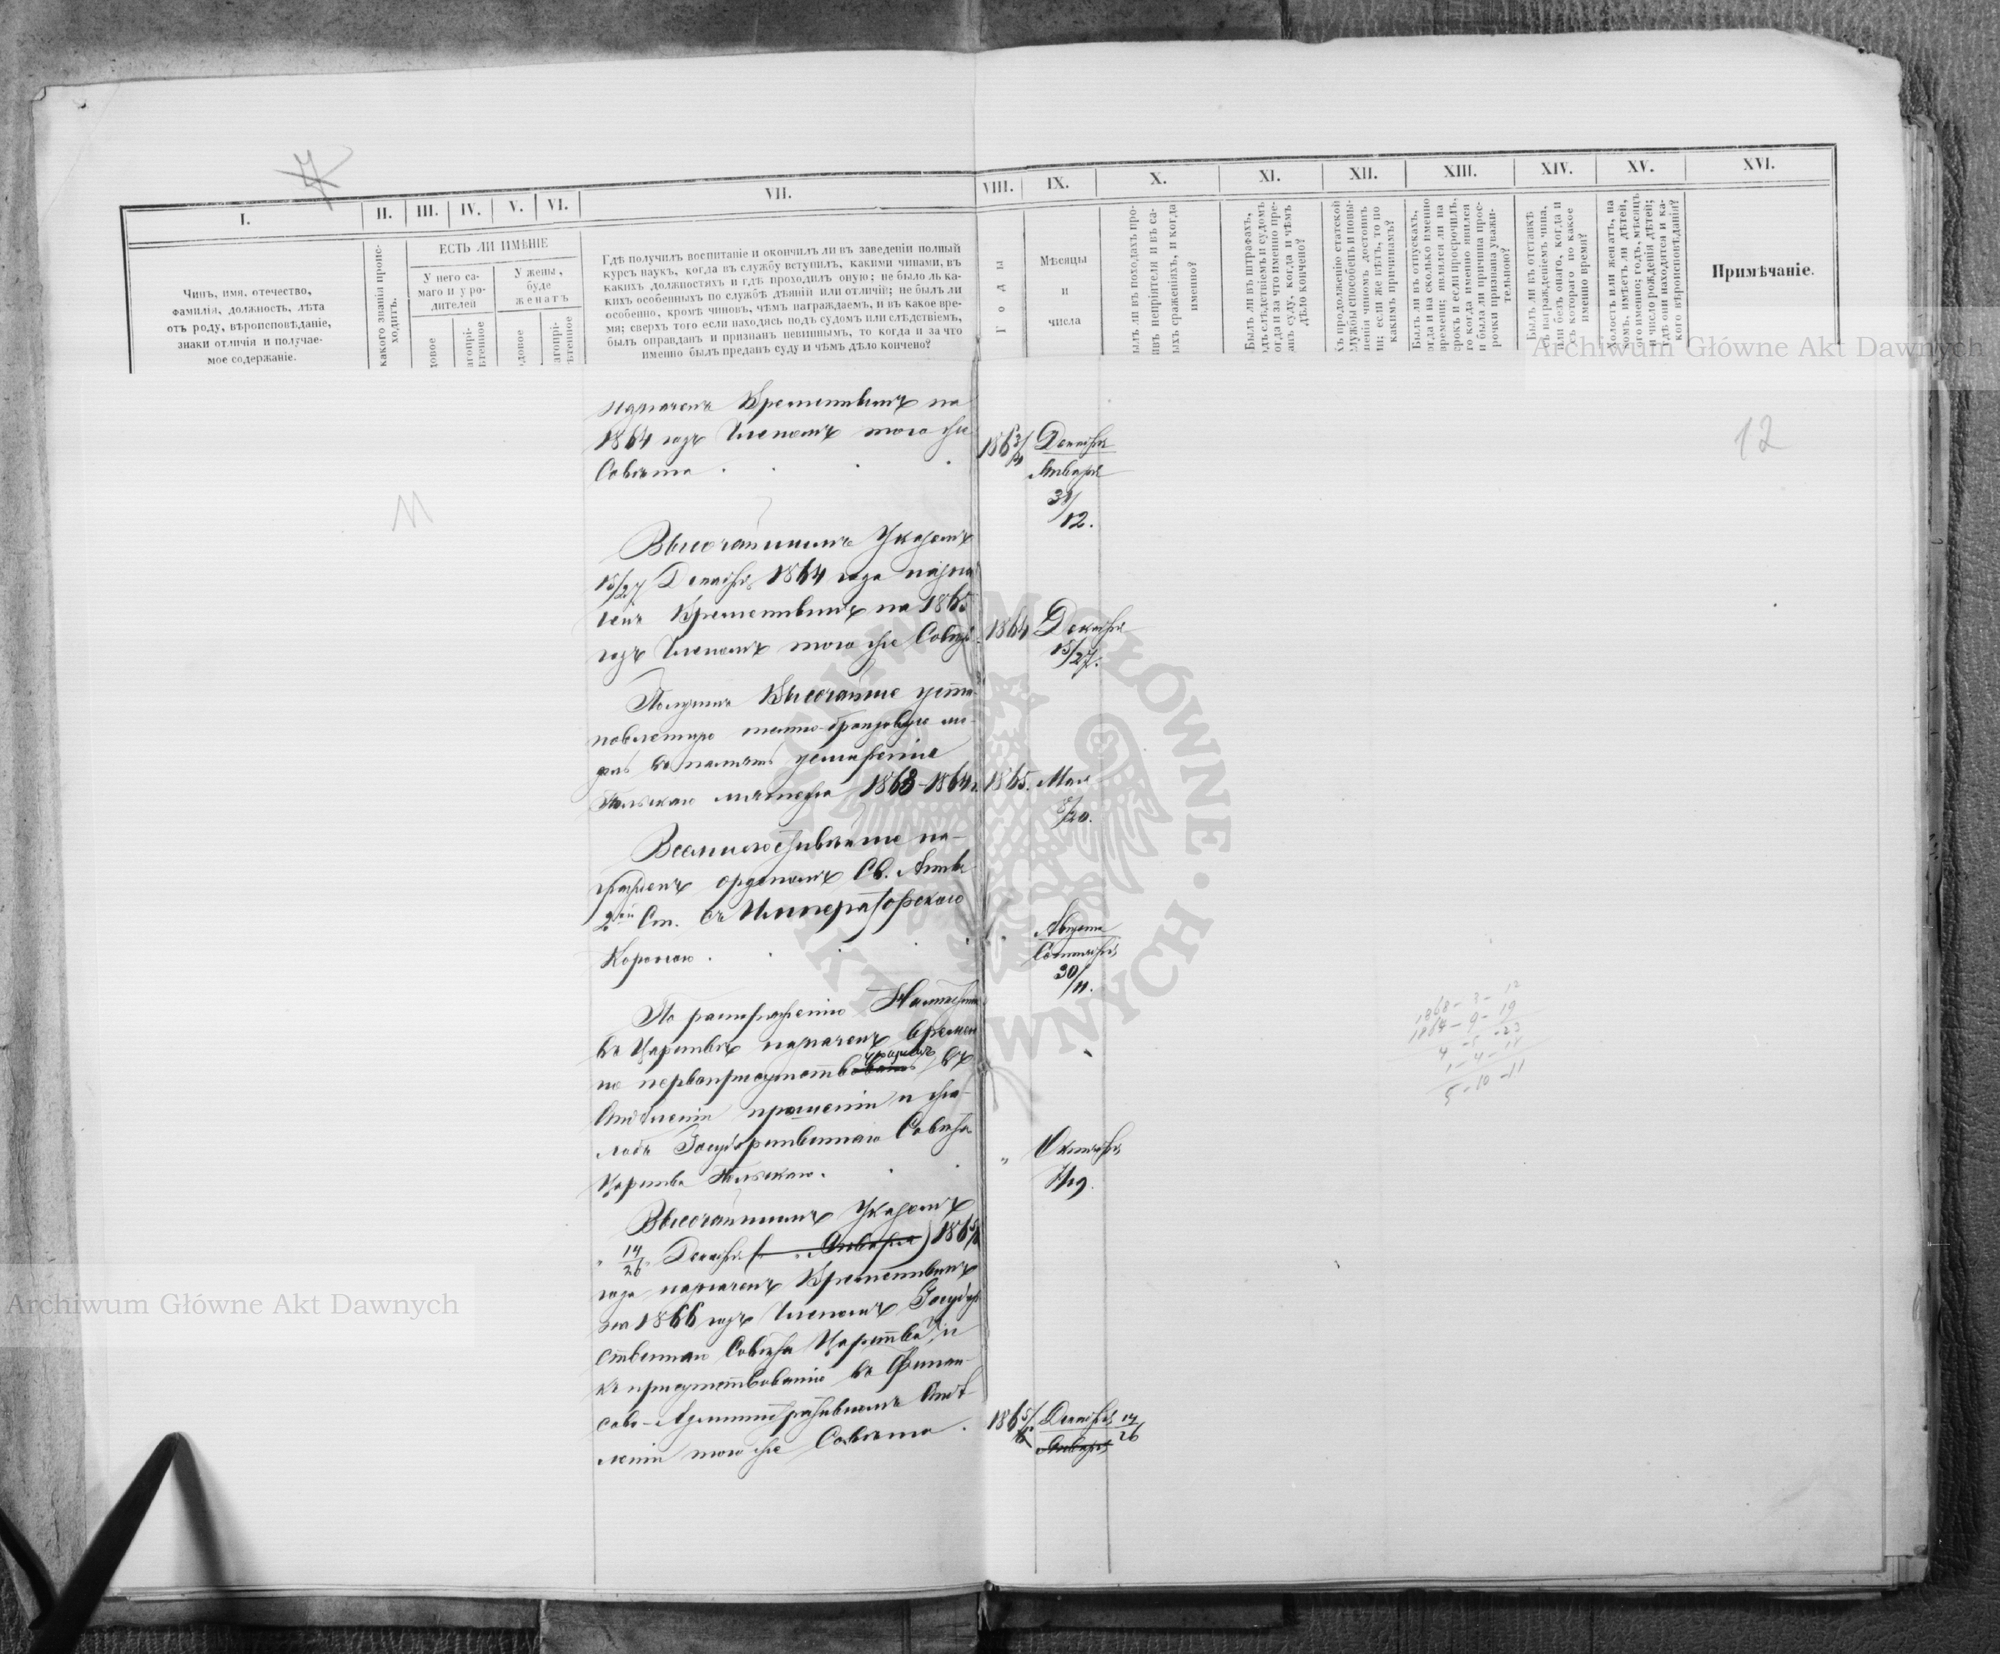 7
I. II. III. IV. V. VI. VII. VIII. IX. X. XI. XII. XIII. XIV. XV. XVI.
Чинъ, имя, отечество,
фамилія, должность, лѣта
отъ роду, вѣроисповѣданіе,
знаки отличія и получае-
мое содержаніе.
какого званія проис-
ходитъ.
ЕСТЬ ЛИ ИМѢНІЕ
У него са-
маго и у ро-
дителей
У жены,
буде
женатъ
Гдѣ получилъ воспитаніе и окончилъ ли въ заведеніи полный
курсъ наукъ, когда въ службу вступилъ, какими чинами, въ
какихъ должностяхъ и гдѣ проходилъ оную; не было ль ка-
кихъ особенныхъ по службѣ дѣяній или отличій; не былъ ли
особенно, кромѣ чиновъ, чѣмъ награждаемъ, и въ какое вре-
мя; сверхъ того если находясь подъ судомъ или слѣдствіемъ,
былъ оправданъ и признанъ невиннымъ, то когда и за что
именно былъ преданъ суду и чѣмъ дѣло кончено?
Годы
Мѣсяцы
и
числа
ылъ ли въ походахъ про-
ивъ непріятеля и въ са-
ыхъ сраженіяхъ, и когда
именно?
Былъ ли въ штрафахъ,
одъ слѣдствіемъ и судомъ
огда и за что именно пре-
анъ суду, когда и чѣмъ
дѣло кончено?
ъ продолженію статской
службы способенъ и повы-
шенія чиномъ достоинъ
ли; если же нѣтъ, то по
какимъ причинамъ?
Былъ ли въ отпускахъ,
огда и на сколько именно
времени; являлся ли на
срокъ и если просрочилъ,
то когда именно явился
и была ли причина прос-
рочки признана уважи-
тельною?
Былъ ли въ отставкѣ
съ награжденіемъ чина,
или безъ онаго, когда и
съ котораго по какое
именно время?
Холостъ или женатъ, на
комъ, имѣетъ ли дѣтей,
кого именно; годъ, мѣсяцъ
и число рожденія дѣтей;
гдѣ они находятся и ка-
кого вѣроисповѣданія?
Примѣчаніе.
Archiwum Główne Akt Dawnych
11
12
назначенъ Кременнымъ на
1864 годъ Членомъ того же
Совѣта . . . .
1863/4 Декабря
Января
31/12.
Высочайшимъ Указомъ
15/27 Декабря 1864 года назна
ченъ Кременнымъ на 1865
годъ Членомъ того же Совѣта
1864 Декабря
15/27.
Получилъ Высочайше уста-
новленную темно-бронзовую ме-
даль въ память усмиренія
Польскаго мятежа 1863-1864 г.
1865. Мая
8/20.
Всемилостивѣйше на-
гражденъ орденомъ Св. Анны
2ой Ст. съ Императорскою
Короною . . . .
" Августа
Сентября
30/11.
По распоряженію Намѣстника
въ Царствѣ назначенъ времен
но первоприсутствующимъ въ
Отдѣленіи прошеній и жа-
лобъ Государственнаго Совѣта
Царства Польскаго. . .
" Октября
7/19.
Высочайшимъ Указомъ
" 14/26 " Декабря (Января) 1865/6
года назначенъ Кременнымъ
на 1866 годъ Членомъ Государ
ственнаго Совѣта Царства, и
къ присутствованію въ Финан-
сово-Административномъ Отдѣ-
леніи того же Совѣта .
1865/6 Декабря 14
Января 26
1868 - 8 - 12
1864 - 9 - 19
4 - 5 - 23
1 - 4 - 18
5 - 10 - 11
Archiwum Główne Akt Dawnych
ARCHIWUM GŁÓWNE · AKT DAWNYCH ·